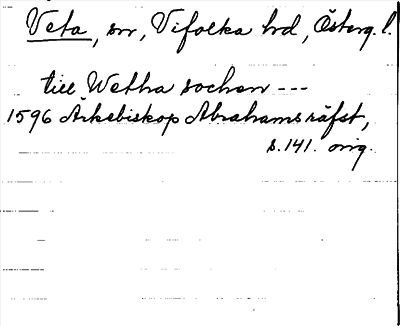 Veta, sn, Vifolka hd, Österg. l.
till Wetha sochen ---
1596 Ärkebiskop Abrahams räfst,
s. 141. orig.